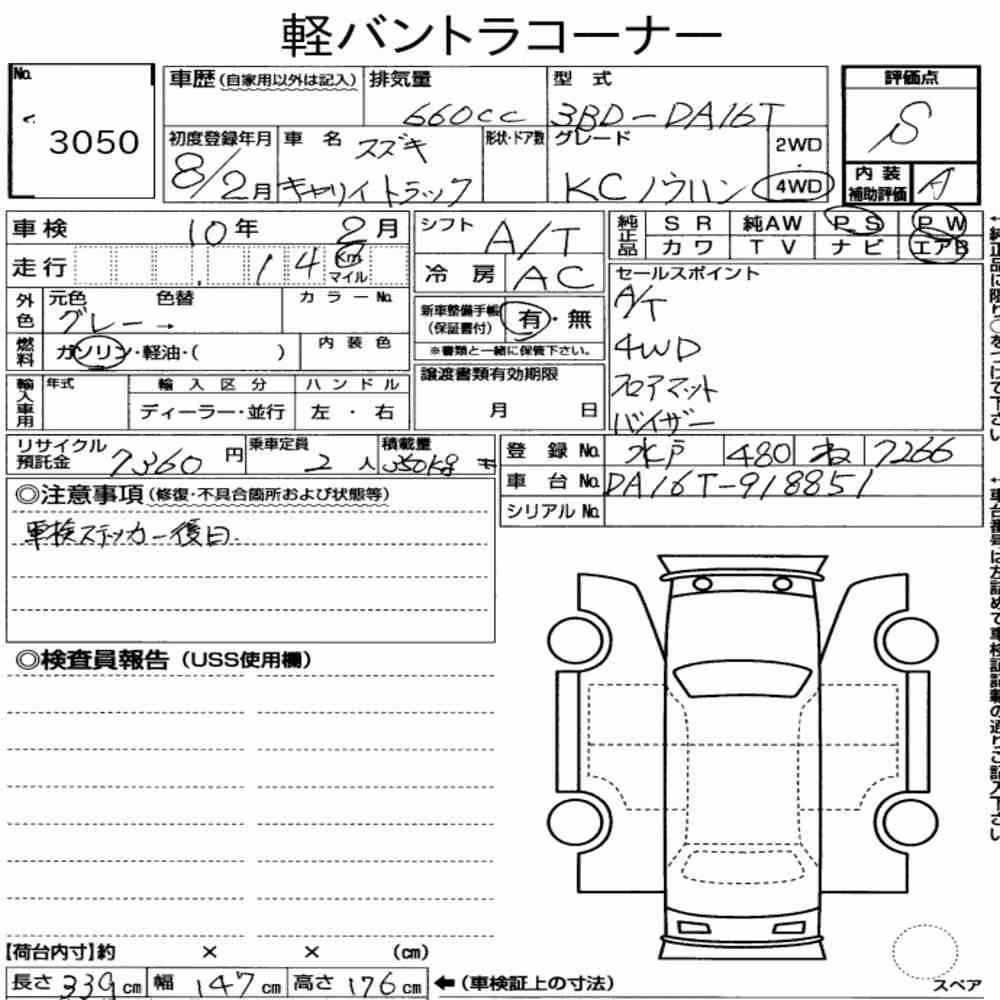 軽バントラコーナー
No. 3050
車歴(自家用以外は記入) 排気量 660cc 型式 3BD-DA16T
評価点 S
初度登録年月 8/2月 車名 スズキ キャリイトラック 形状・ドア数 グレード KCノウハン 2WD・4WD
内装補助評価 A
車検 10年 2月
走行 14 Km マイル
シフト A/T
冷房 AC
純正品 SR 純AW PS PW
カワ TV ナビ エアB
外色 元色 グレー→ 色替 カラーNo.
燃料 ガソリン・軽油・( ) 内装色
新車整備手帳(保証書付) 有・無
※書類と一緒に保管下さい。
セールスポイント
A/T
4WD
フロアマット
バイザー
輸入車用 年式 輸入区分 ハンドル
ディーラー・並行 左・右
譲渡書類有効期限
月 日
リサイクル預託金 7360円 乗車定員 2人 積載量 350kg
登録No. 水戸 480 ね 7266
車台No. DA16T-918851
シリアルNo.
◎注意事項(修復・不具合箇所および状態等)
車検ステッカー後日.
◎検査員報告(USS使用欄)
【荷台内寸】約 × × (cm)
長さ 339cm 幅 147cm 高さ 176cm ←(車検証上の寸法)
スペア
←純正品に限り○をつけて下さい。
←車台番号は左詰めで車検証記載の通りご記入下さい